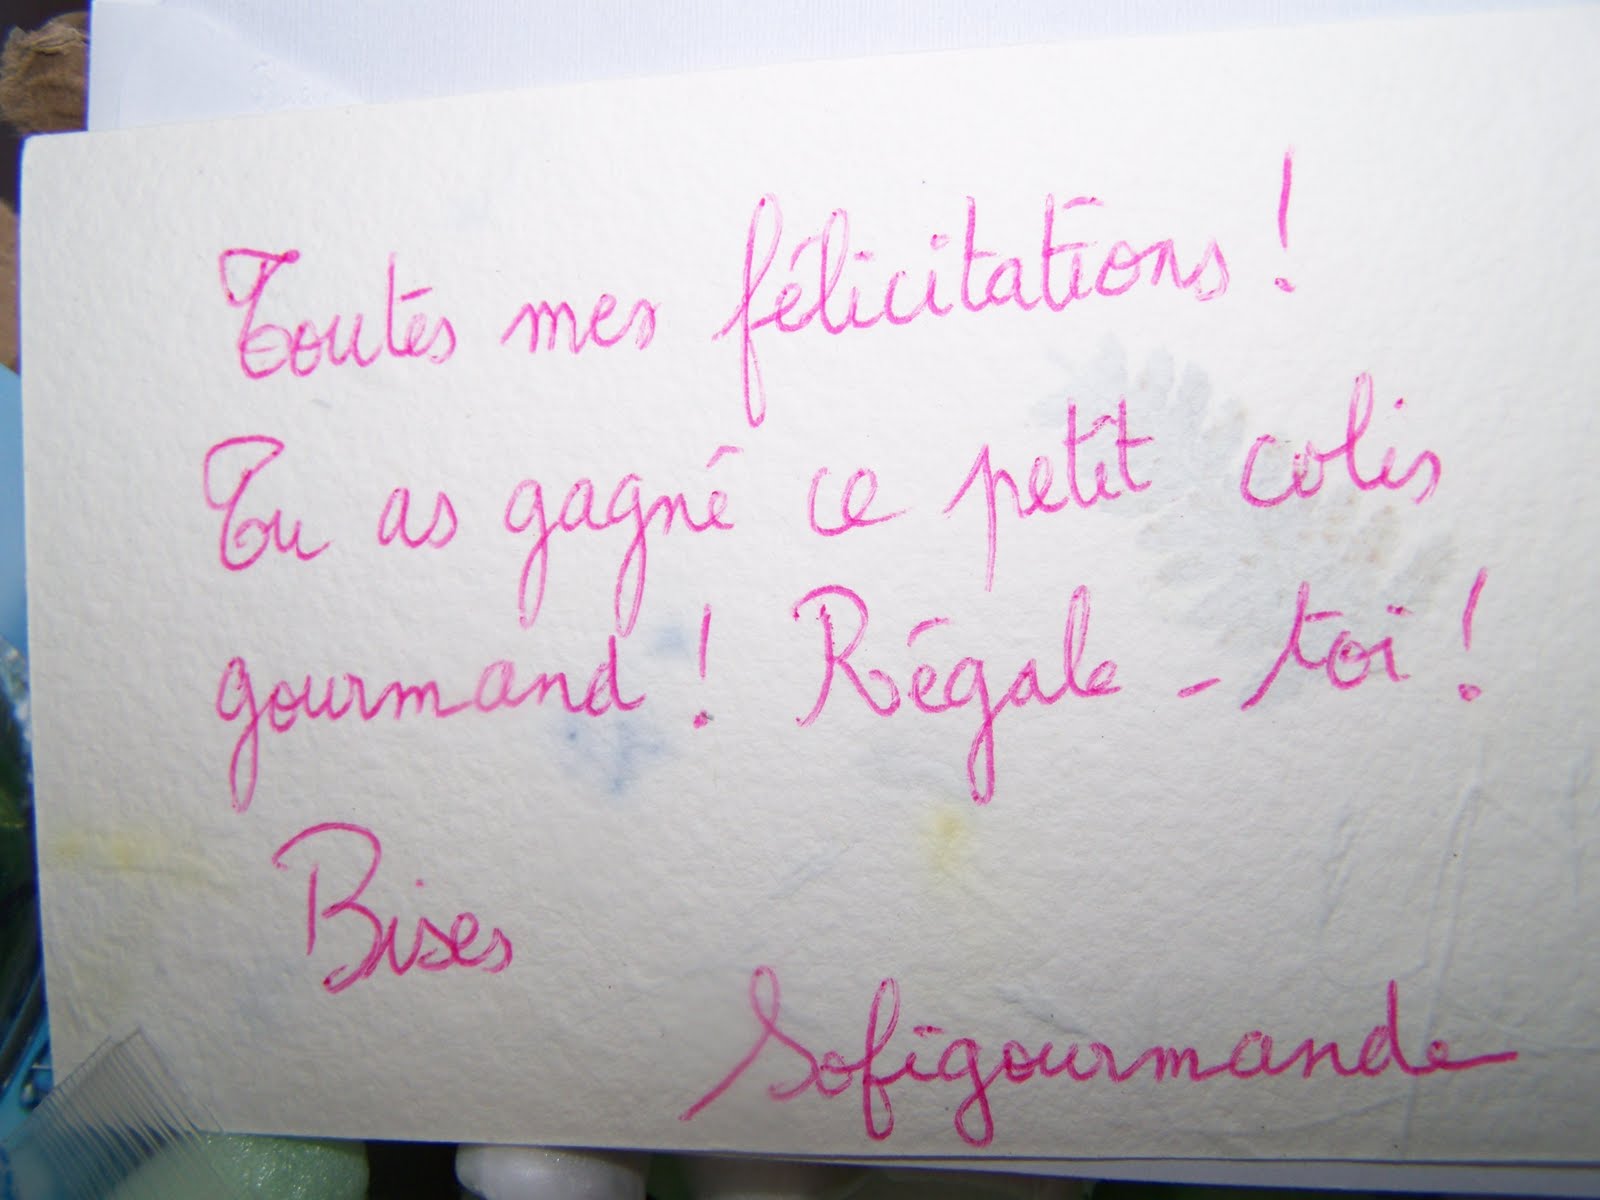 Toutes mes félicitations !
Tu as gagné ce petit colis
gourmand ! Régale-toi !
Bises
Sofigourmande